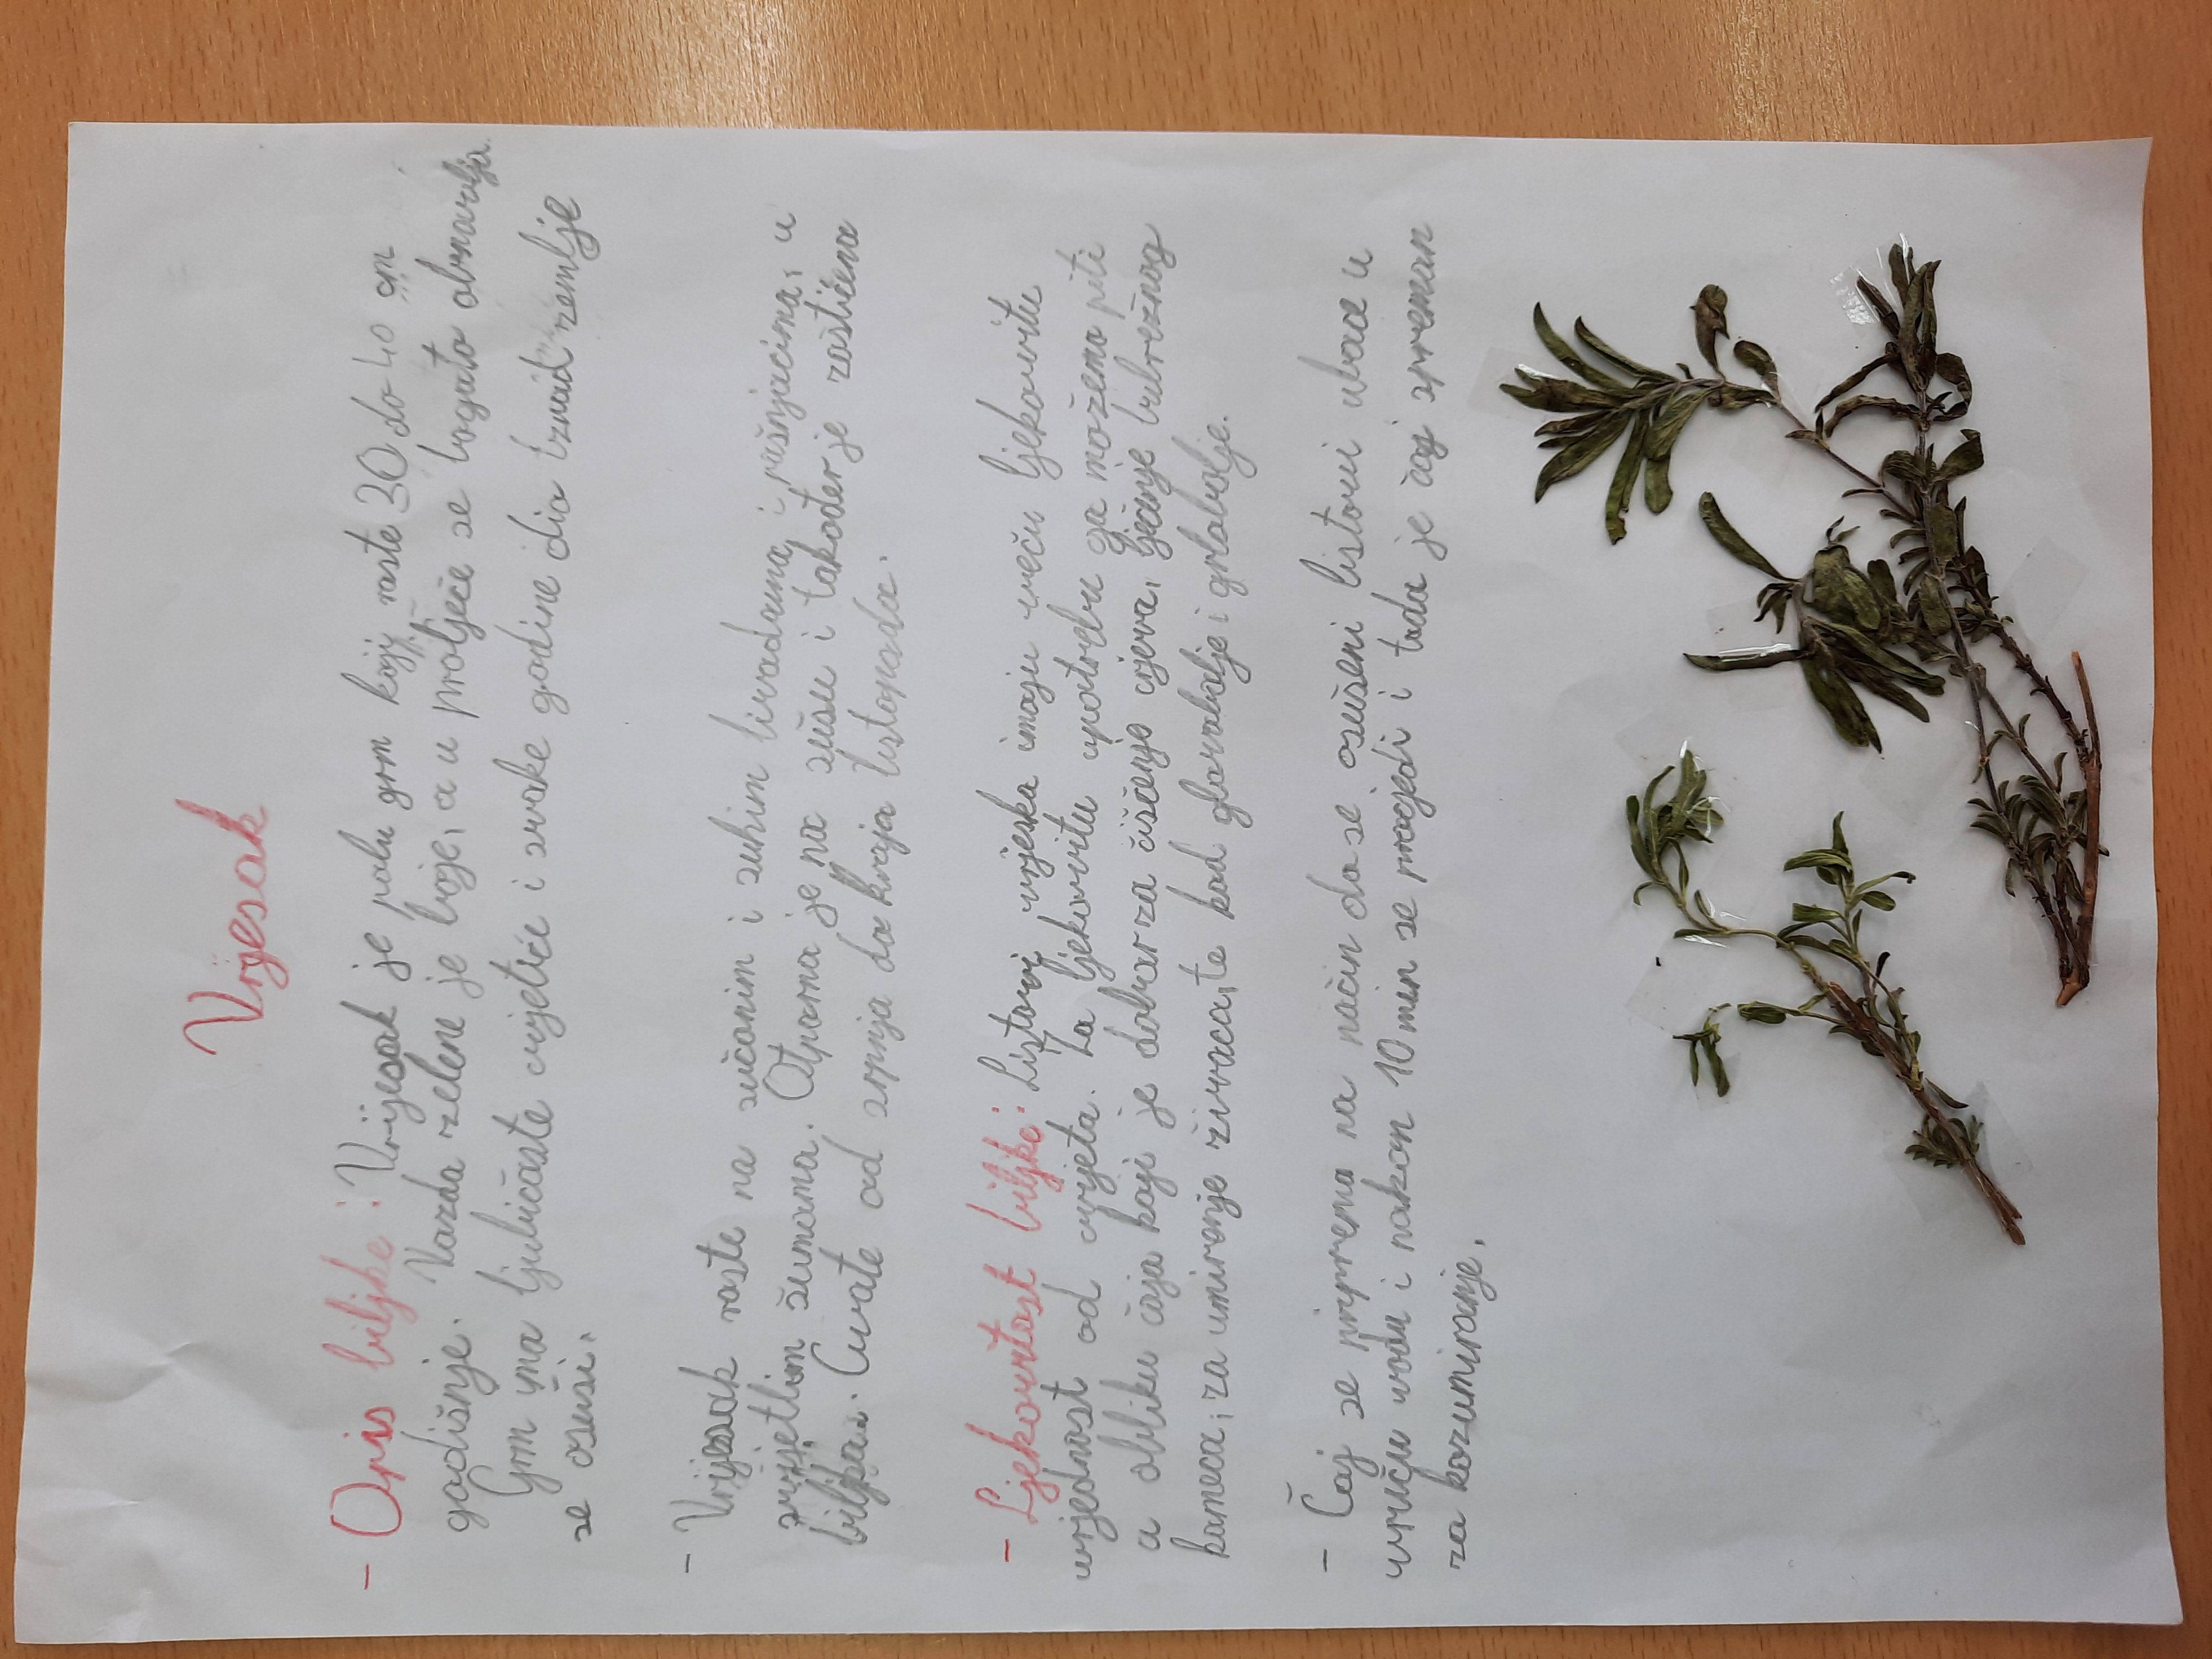 Vrijesak
- Opis biljke: Vrijesak je polu grm koji raste 30 do 40 cm
godišnje. Vazda zelene je boje, a u proljeće se bogato obnavlja.
Grm ima ljubičaste cvjetiće i svake godine dio iznad zemlje
se osuši.
- Vrijesak raste na sunčanim i suhim livadama i pašnjacima, u
svijetlim šumama. Otporna je na sušu i također je zaštićena
biljka. Cvate od srpnja do kraja listopada.
- Ljekovitost biljke: Listovi vrijeska imaju veću ljekovitu
vrijednost od cvijeta. Za ljekovitu upotrebu ga možemo piti
u obliku čaja koji je dobar za čišćenje crijeva, liječenje bubrežnog
kamenca, za umiranje živaca, te kod glavobolje i grlobolje.
- Čaj se priprema na način da se osušeni listovi ubace u
vruću vodu i nakon 10 min se procjedi i tada je čaj spreman
za kozumiranje.